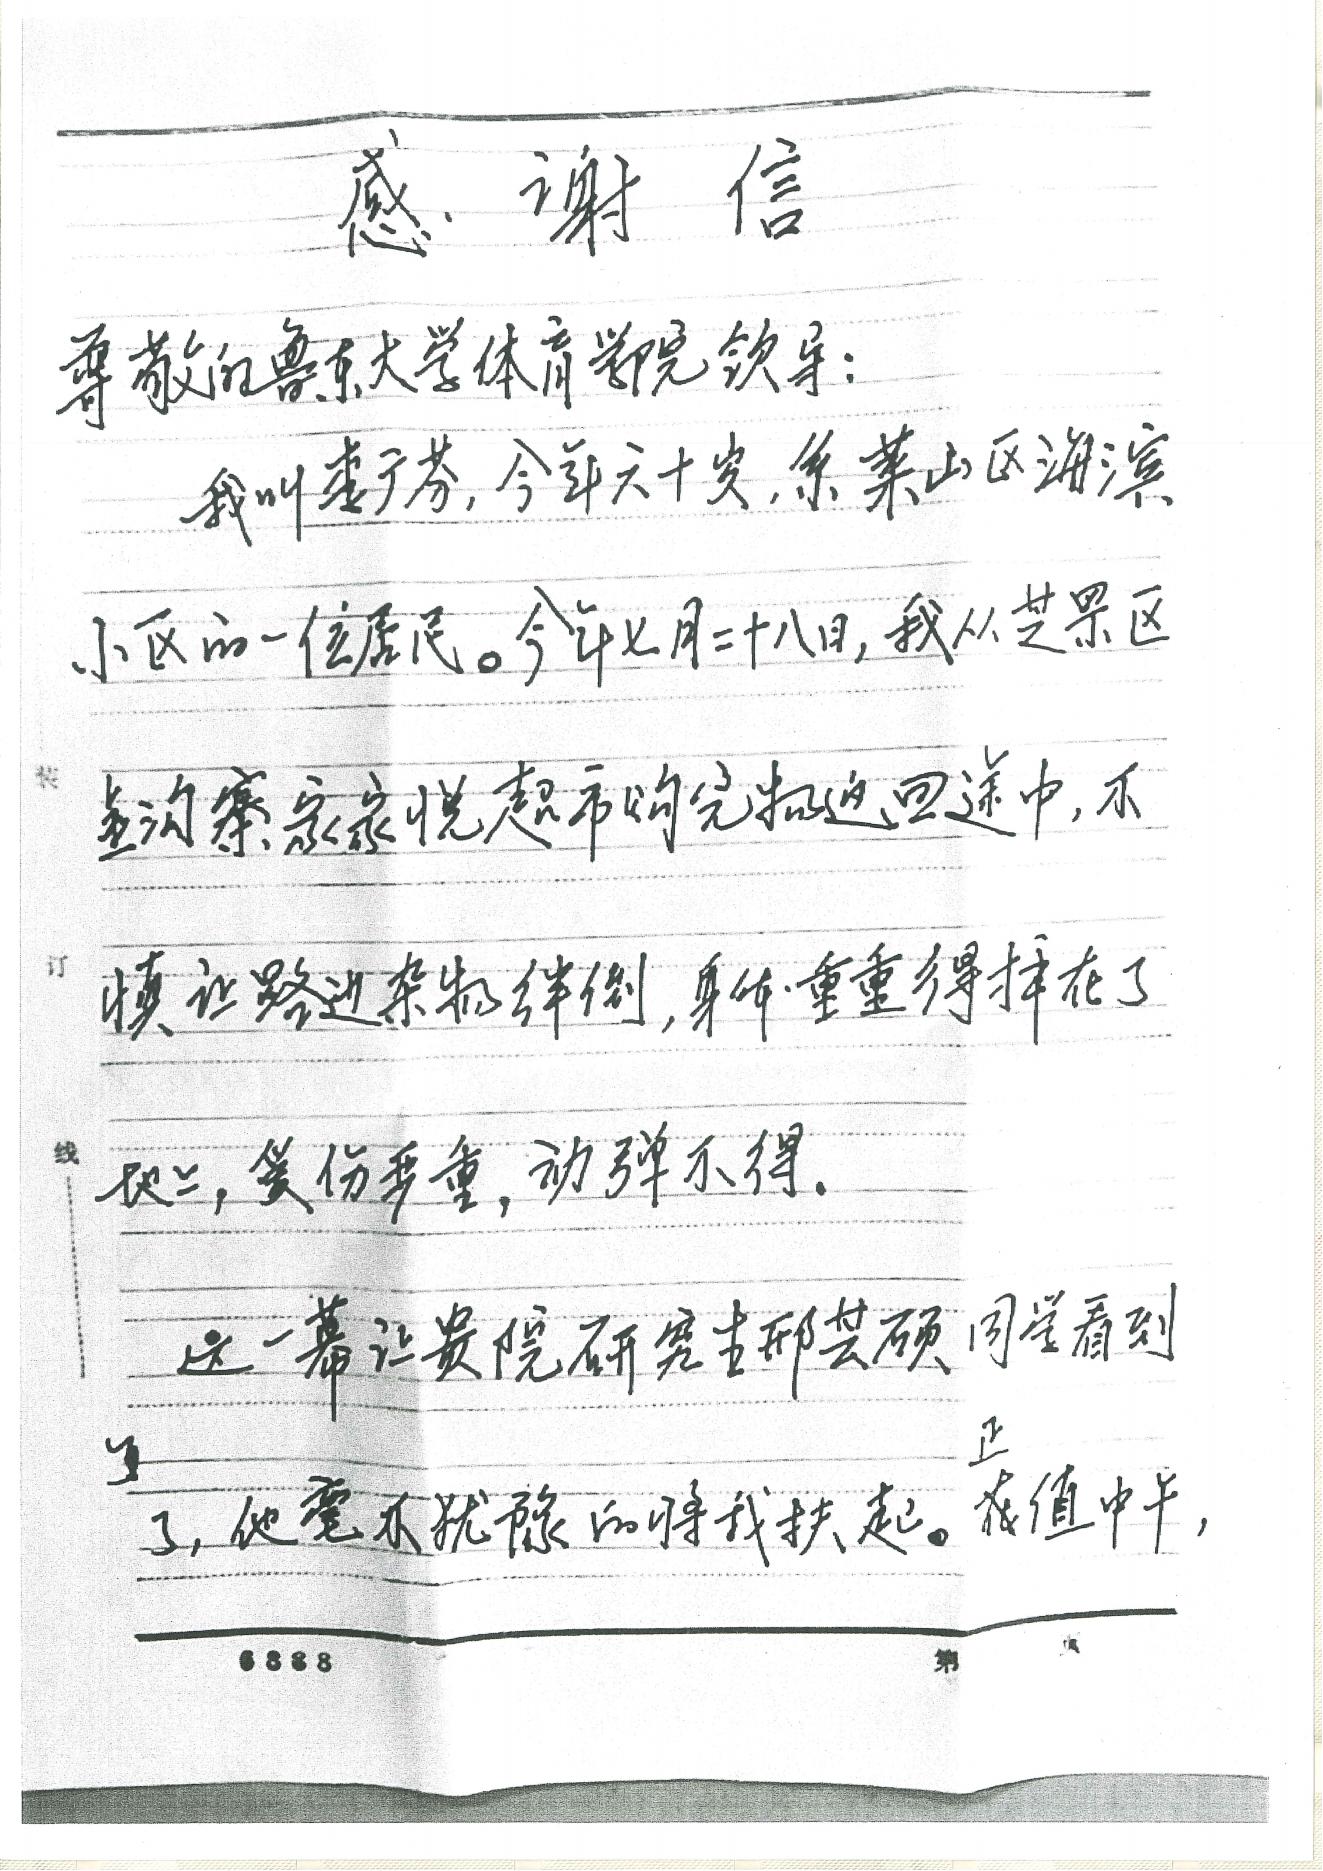 感谢信
尊敬的鲁东大学体育学院领导：
我叫娄于芬，今年六十岁，系莱山区海滨
小区的一位居民。今年七月二十八日，我从芝罘区
壶沟寨家家悦超市购完物返回途中，不
慎让路边杂物绊倒，身体重重得摔在了
地上，受伤严重，动弹不得。
这一幕让贵院研究生邢芸硕同学看到
了，他毫不犹豫的将我扶起。正值中午，
装
订
线
6888
第 页